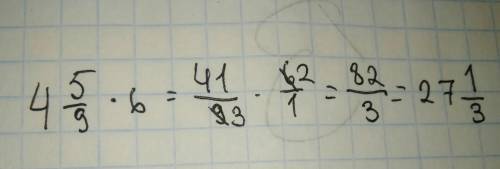 4 5/9 · 6 = 41/9̶3 · 6̶2/1 = 82/3 = 27 1/3